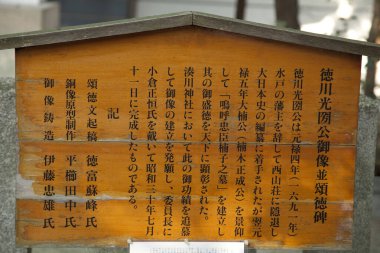 徳川光圀公御像並頌徳碑
徳川光圀公は元禄四年(一六九一)
水戸の藩主を辞して西山荘に隠退し
大日本史の編纂に着手されたが翌元
禄五年大楠公(楠木正成公)を景仰
して「嗚呼忠臣楠子之墓」を建立し
其の御盛徳を天下に顕彰された。
湊川神社において此の御功績を追慕
して御像の建立を発願し、委員長に
小倉正恒氏を戴いて昭和三十年七月
十一日に完成したものである。
記
頌徳文起稿 徳富蘇峰氏
銅像原型制作 平櫛田中氏
御像鋳造 伊藤忠雄氏